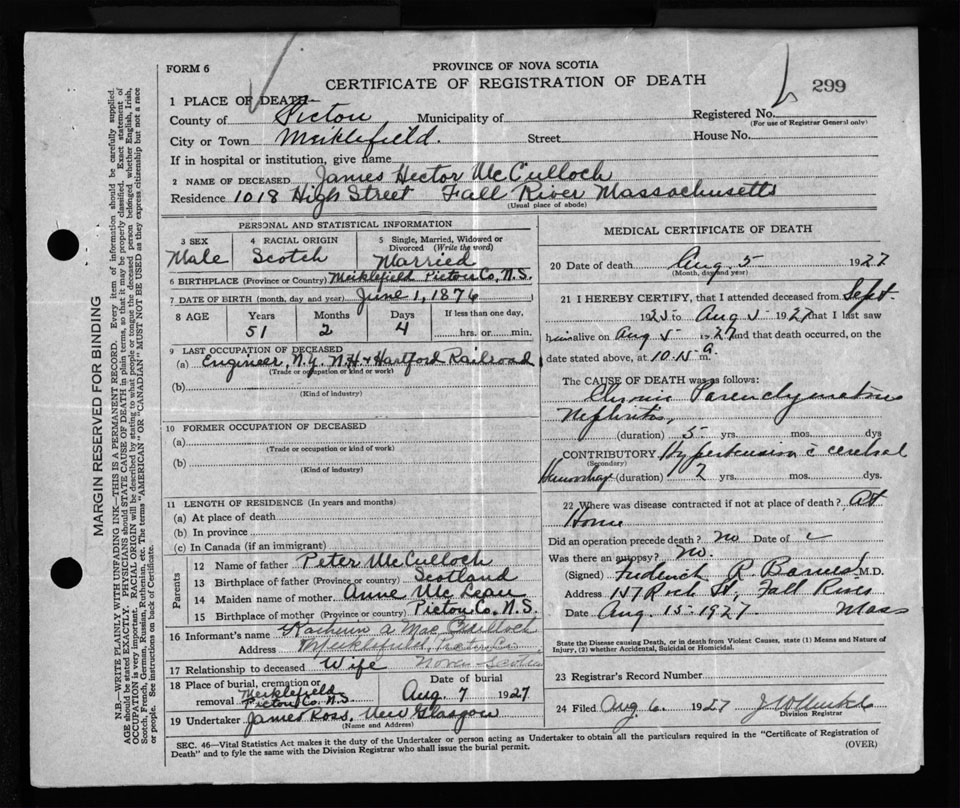 FORM 6
PROVINCE OF NOVA SCOTIA
CERTIFICATE OF REGISTRATION OF DEATH
299
1 PLACE OF DEATH
County of Pictou Municipality of Registered No.
(For use of Registrar General only)
City or Town Meiklefield. Street House No.
If in hospital or institution, give name
2 NAME OF DECEASED James Hector McCulloch
Residence 1018 High Street Fall River Massachusetts
(Usual place of abode)
PERSONAL AND STATISTICAL INFORMATION
3 SEX 4 RACIAL ORIGIN 5 Single, Married, Widowed or Divorced (Write the word)
Male Scotch Married
6 BIRTHPLACE (Province or Country) Meiklefield Pictou Co, N.S.
7 DATE OF BIRTH (month, day and year) June 1, 1876
8 AGE Years Months Days If less than one day,
51 2 4 hrs. or min.
9 LAST OCCUPATION OF DECEASED
(a) Engineer, N.Y. N.H. + Hartford Railroad
(Trade or occupation or kind or work)
(b)
(Kind of industry)
10 FORMER OCCUPATION OF DECEASED
(a)
(Trade or occupation or kind of work)
(b)
(Kind of industry)
11 LENGTH OF RESIDENCE (In years and months)
(a) At place of death
(b) In province
(c) In Canada (if an immigrant)
Parents
12 Name of father Peter McCulloch
13 Birthplace of father (Province or country) Scotland
14 Maiden name of mother Anne McLean
15 Birthplace of mother (Province or Country) Pictou Co. N.S.
16 Informant's name a Mac Culloch
Address Meiklefield, Pictou Co
Nova Scotia
17 Relationship to deceased Wife
18 Place of burial, cremation or removal Meiklefield Pictou Co. N.S.
Date of burial Aug. 7 1927
19 Undertaker James Ross, New Glasgow
(Name and Address)
MEDICAL CERTIFICATE OF DEATH
20 Date of death Aug 5 1927
(Month, day and year)
21 I HEREBY CERTIFY, that I attended deceased from Sept.
to Aug 5 1927 that I last saw
him alive on Aug 5 1927 and that death occurred, on the
date stated above, at 10.15 a m.
The CAUSE OF DEATH was as follows:
Chronic Parenchymatous
Nephritis,
(duration) 5 yrs. mos. dys
CONTRIBUTORY Hypertension c cerebral
(Secondary)
Hemorrhage (duration) 2 yrs. mos. dys.
22 Where was disease contracted if not at place of death? At
Home
Did an operation precede death? no Date of
Was there an autopsy? no.
(Signed) Frederick R. Barnes M.D.
Address Rock St, Fall River
Mass
Date Aug. 15 1927.
State the Disease causing Death, or in death from Violent Causes, state (1) Means and Nature of
Injury, (2) whether Accidental, Suicidal or Homicidal.
23 Registrar's Record Number
24 Filed Aug 6. 1927
Division Registrar
SEC. 46—Vital Statistics Act makes it the duty of the Undertaker or person acting as Undertaker to obtain all the particulars required in the "Certificate of Registration of
Death" and to fyle the same with the Division Registrar who shall issue the burial permit.
(OVER)
MARGIN RESERVED FOR BINDING
N.B.—WRITE PLAINLY WITH UNFADING INK—THIS IS A PERMANENT RECORD. Every item of information should be carefully supplied.
AGE should be stated EXACTLY. PHYSICIANS should STATE CAUSE OF DEATH in plain terms, so that it may be properly classified. Exact statement of
OCCUPATION is very important. RACIAL ORIGIN will be described by stating to what people or tongue the deceased person belonged whether English, Irish,
Scotch, French, German, Russian, Ruthenian, etc. The terms "AMERICAN" OR "CANADIAN" MUST NOT BE USED as they express citizenship but not a race
or people. See instructions on back of Certificate.